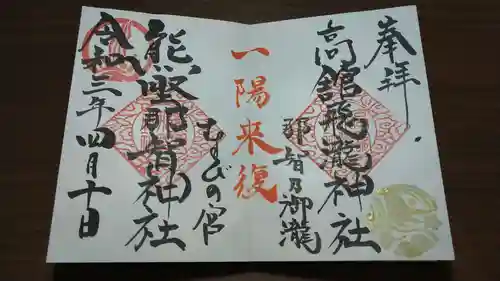 奉拝
高館飛瀧神社
那智乃御瀧
一陽来復
むすびの宮
熊野那智神社
令和三年四月十日